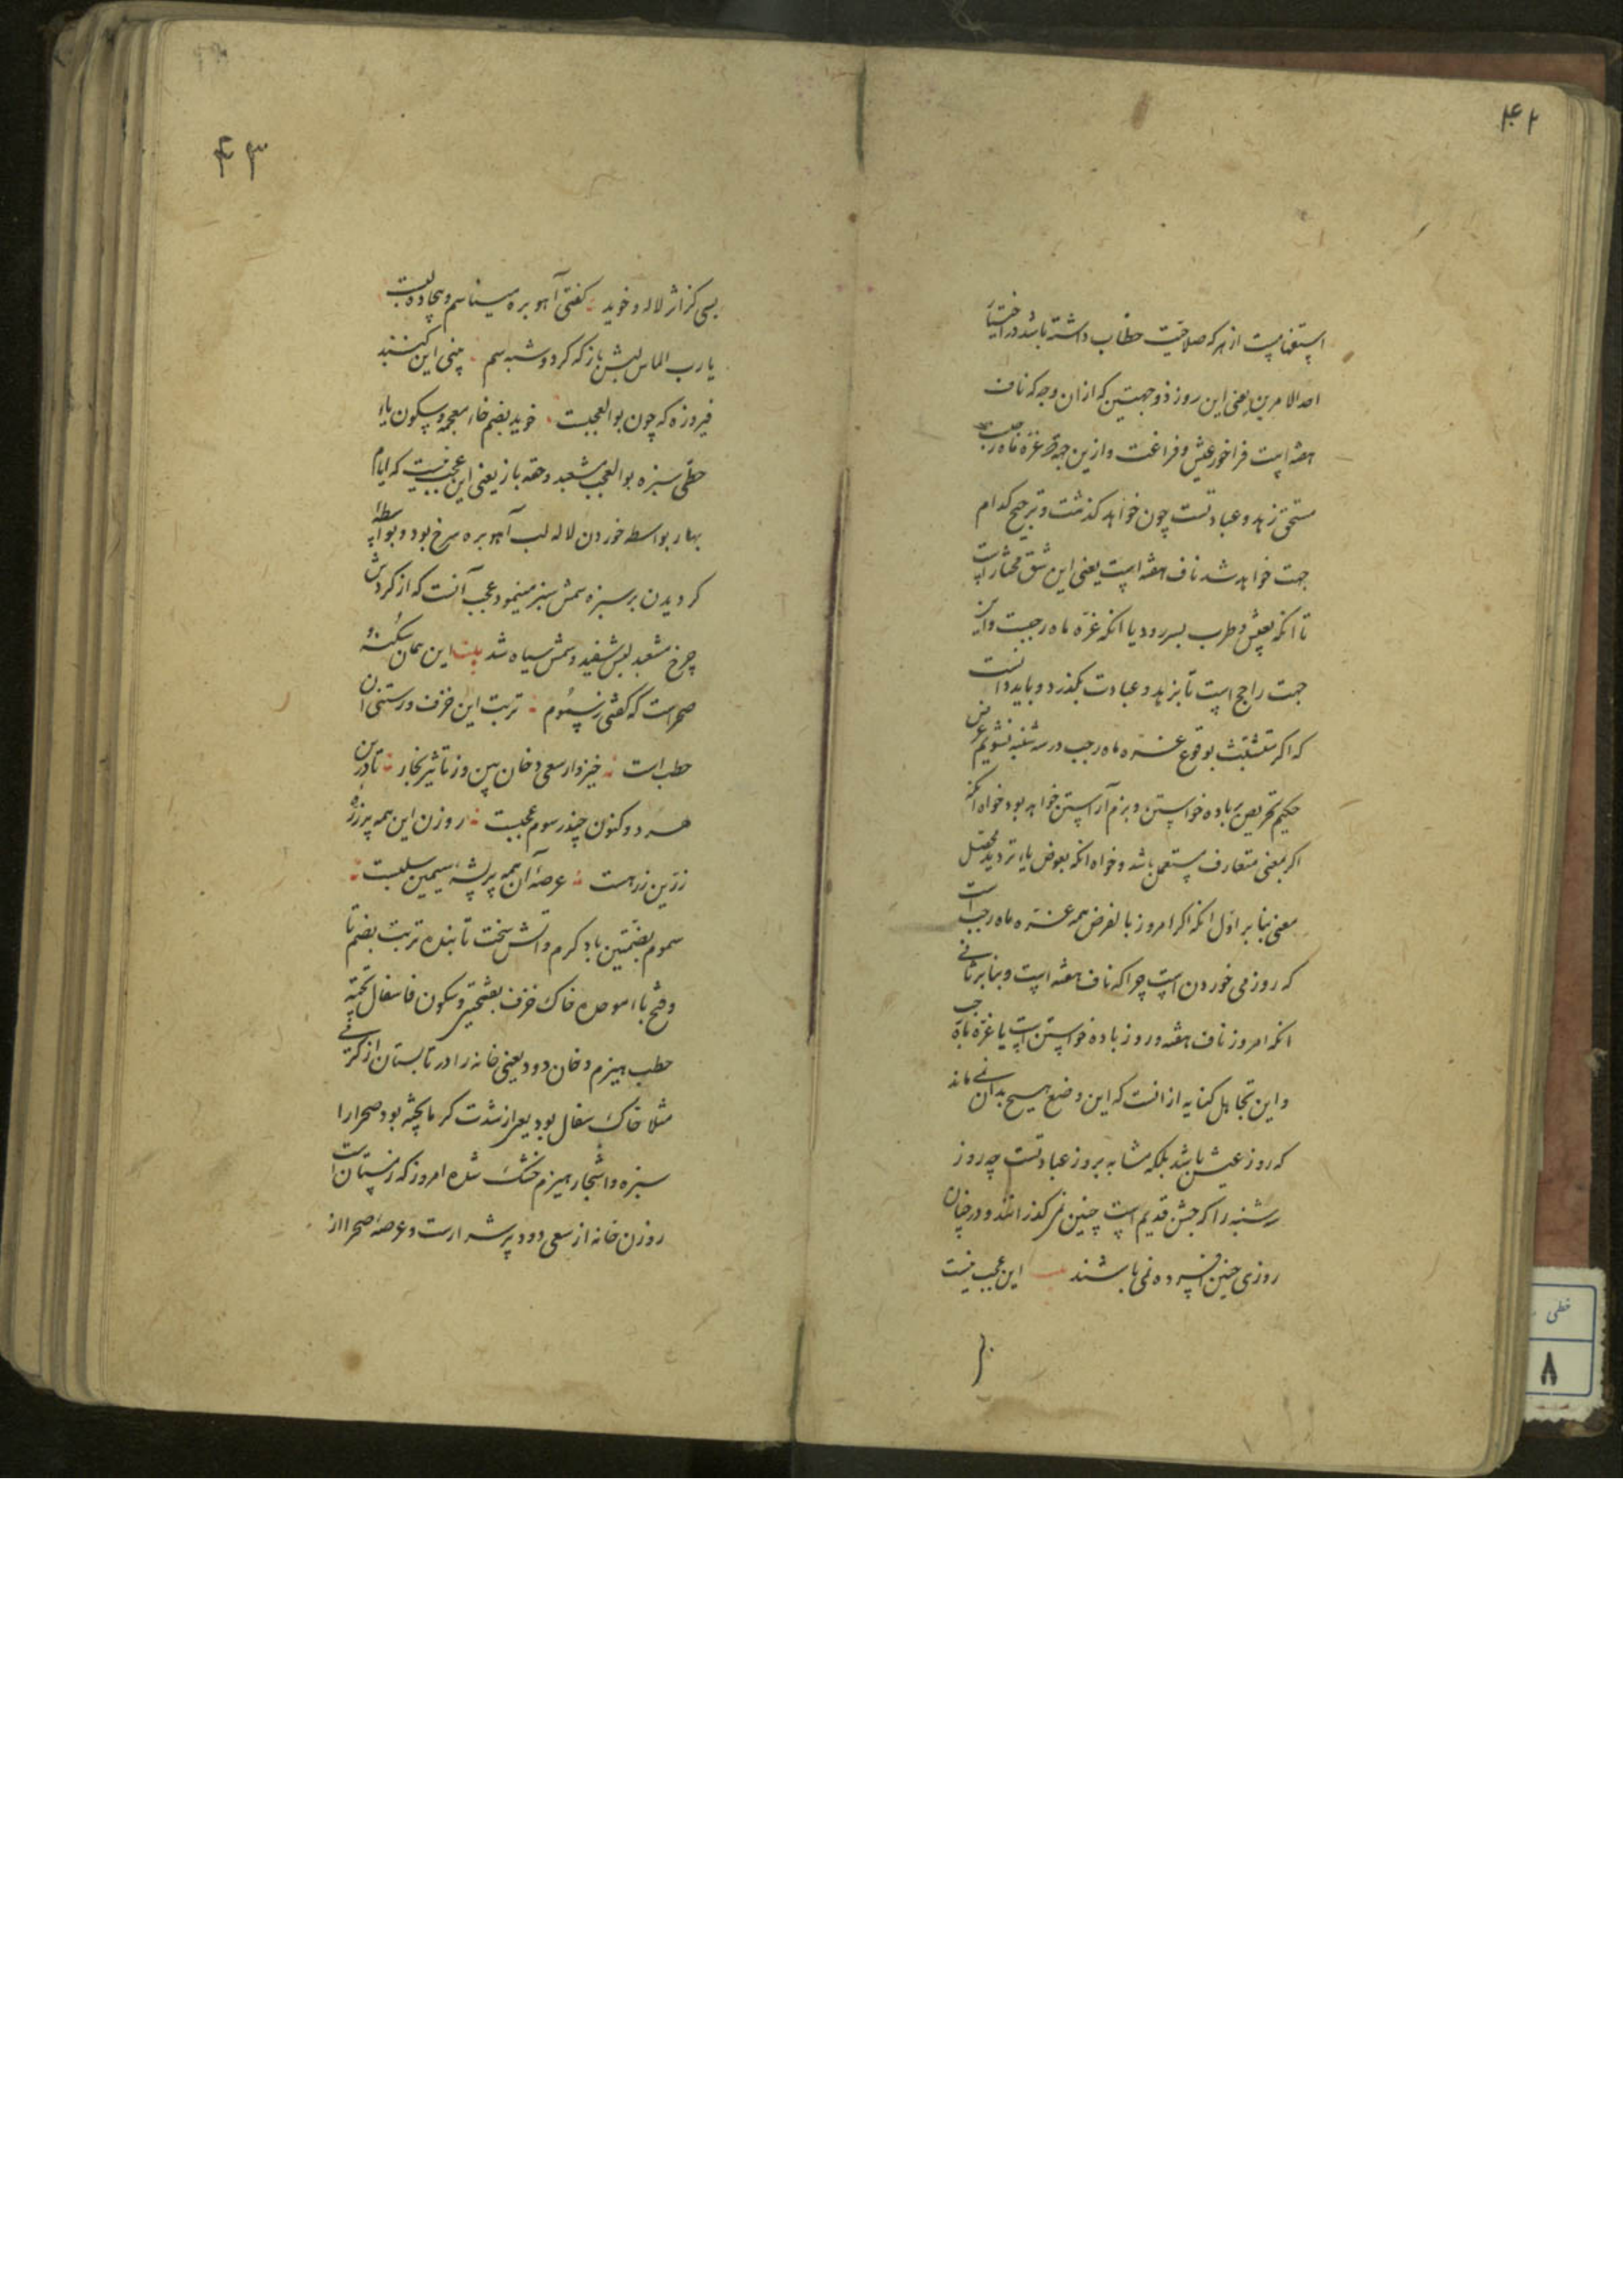 ۴۲
استفهامیست از هر که صلاحیت خطاب داشته باشد در اختیار
احد الامرین یعنی این روز ذو جهتین که از ان وجه که ناف
هفته است فراخور عیش و فراغت و ازین جهة که غره ماه رجب
مستحق زهد و عبادتست چون خواهد کذشت و ترجیح کدام
جهت خواهد شد ناف هفته است یعنی این شق مختار است
تا انکه بعیش و طرب بسر رود یا انکه غره ماه رجبست و این
جهت راجح است تا بزهد و عبادت بکذرد و باید دانست
که اکر متشبث بوقوع غره ماه رجب در سه شنبه نشویم غرض
حکیم تحریص بباده خواستن و بزم آراستن خواهد بود خواه انکه
اکر بمعنی متعارف مستعمل باشد و خواه انکه بعوض یاء تردید محصل
معنی بنا بر اول انکه اکر امروز بالفرض همه غره ماه رجب است
که روز می خوردن است چرا که ناف هفته است و بنا بر ثانی
انکه امروز ناف هفته و روز باده خواستن است یا غره ماه رجب
و این تجاهل کنایه از انست که این وضع هیچ بدان نمی ماند
که روز عیش باشد بلکه مشابه بروز عبادتست چه روز
سه شنبه را که جشن قدیم است چنین نمی کذرانند و در چنان
روزی چنین افسرده نمی باشند این عجب نیست
۴۳
بسی کز اثر لاله و خوید کفتی آهو بره میناسم و بیجاده لبست
یا رب الماس لبش باز که کرد و شبه سم بینی این کنبد
فیروزه که چون بوالعجبست خوید بضم خاء معجمه و سکون یاء
حطی سبزه بوالعجب مشعبد و حقه باز یعنی این عجب نیست که ایام
بهار بواسطه خوردن لاله لب آهو بره سرخ بود و بواسطه
کردیدن بر سبزه سمش سبز مینمود عجب آنست که از کردش
چرخ مشعبد لبش سفید و سمش سیاه شد بیت این همان سکنه و
صحراست که کفتی ز سموم تربت این خزف و رستنی آن
حطب است خیز و از سعی دخان بین و ز تاثیر بخار تا درین
هر دو کنون چند رسوم عجبست روزن این همه پر زره
زرین زرهست عرصهٔ آن همه پر پشه سیمین سلبست
سموم بضمتین باد کرم و آتش سخت تابنده تربت بضم تا
و فتح با موحده خاک خزف بفتحتین و سکون فا سفال پخته
حطب هیزم دخان دود یعنی خانه را در تابستان از کرمی
مثلا خاک سفال بود یعنی از شدت کرما پخته بود صحرا را
سبزه و اشجار هیزم خشک شده امروز که زمستان است
روزن خانه از سعی دود پر شرارت و عرصهٔ صحرا از
خطی
۸